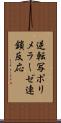 逆転写ポリ
メラーゼ連
鎖反応